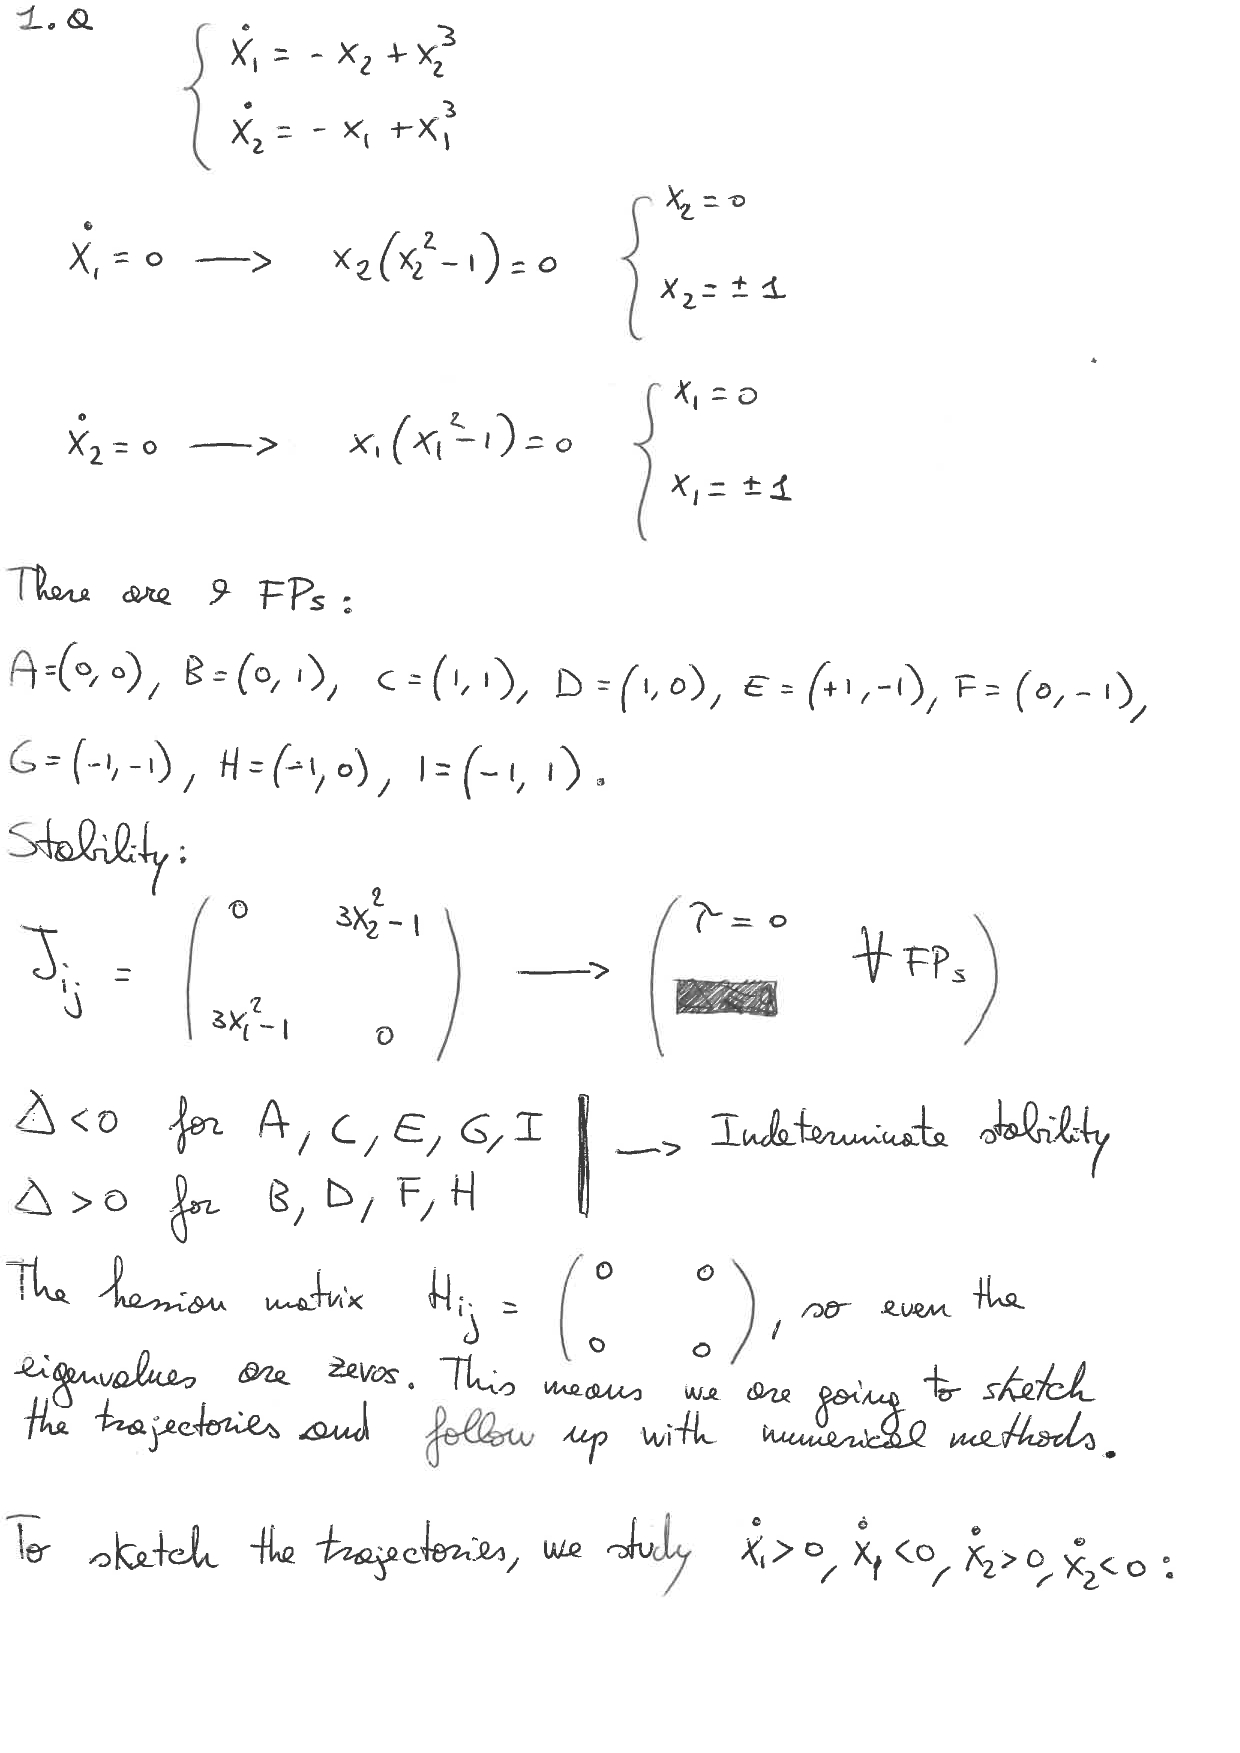 1.a
ẋ₁ = - x₂ + x₂³
ẋ₂ = - x₁ + x₁³
ẋ₁ = 0 → x₂(x₂² - 1) = 0 { x₂ = 0
x₂ = ± 1
ẋ₂ = 0 → x₁(x₁² - 1) = 0 { x₁ = 0
x₁ = ± 1
There are 9 FPs:
A=(0,0), B=(0,1), C=(1,1), D=(1,0), E=(+1,-1), F=(0,-1),
G=(-1,-1), H=(-1,0), I=(-1,1).
Stability:
J_ij = ( 0 3x₂²-1
3x₁²-1 0 ) → ( τ = 0 ∀ FPs )
Δ<0 for A, C, E, G, I | → Indeterminate stability
Δ>0 for B, D, F, H
The hessian matrix H_ij = ( 0 0
0 0 ), so even the
eigenvalues are zeros. This means we are going to sketch
the trajectories and follow up with numerical methods.
To sketch the trajectories, we study ẋ₁>0, ẋ₁<0, ẋ₂>0, ẋ₂<0: